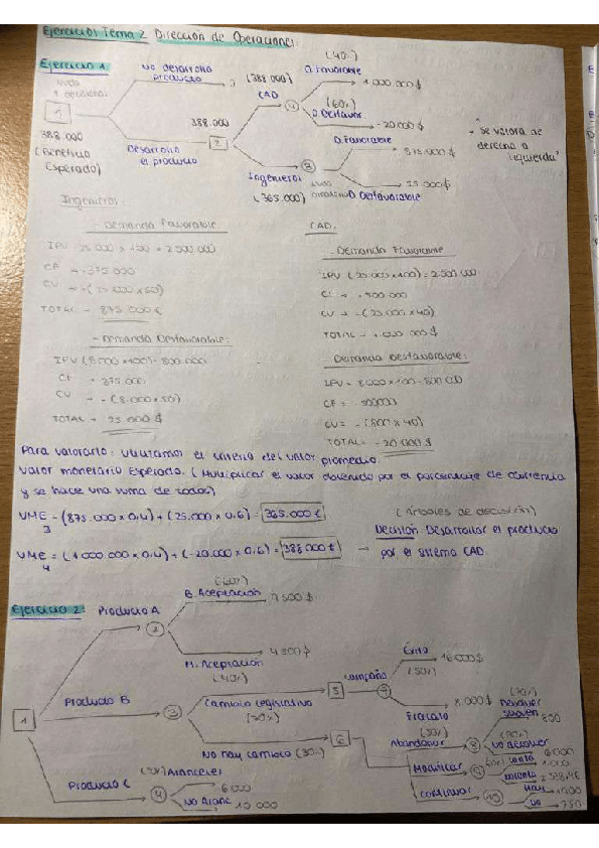 Ejercicios Tema 2 Dirección de Operaciones
Ejercicio 1:
No desarrolla producto
0
(388.000)
CAD
(40%)
D. Favorable
1.000.000 $
(60%)
D. Desfavor
-20.000 $
388.000
(Beneficio Esperado)
1
Desarrolla el producto
388.000
2
4
Ingenieros
(365.000)
3
D. Favorable
875.000 $
D. Desfavorable
25.000 $
"Se valora de derecha a izquierda"
Ingenieros:
- Demanda Favorable:
IPV 25.000 x 100 = 2.500.000
CF = -375.000
TOTAL = 875.000 €
- Demanda Desfavorable:
IPV (8.000 x 100) = 800.000
CF = 375.000
CV = -(8.000 x 50)
TOTAL = 25.000 $
CAD:
- Demanda Favorable
IPV (25.000 x 100) = 2.500.000
CV = -(25.000 x 40)
TOTAL = 1.000.000 $
Demanda Desfavorable:
IPV = 8.000 x 100 = 800.000
CF = 500000
CV = -(800 x 40)
TOTAL = -20.000 $
Para valorarlo: utilizamos el criterio del valor promedio.
Valor monetario Esperado. (Multiplicar el valor obtenido por el porcentaje de ocurrencia
y se hace una suma de todos)
VME 3 = (875.000 x 0,4) + (25.000 x 0,6) = 365.000 €
VME 4 = (1.000.000 x 0,4) + (-20.000 x 0,6) = 388.000 €
(Árboles de decisión)
Decisión: Desarrollar el producto
por el sistema CAD.
Ejercicio 2:
Producto A
2
(60%)
B. Aceptación
7.500 $
M. Aceptación
(40%)
1
Producto B
3
Cambio legislativo
(70%)
5
Campaña
7
Éxito
(50%)
16000 $
Fracaso
(50%)
8.000 $
No hay cambio (30%)
6
Abandonar
8
No devolver
Modificar
9
Continuar
10
750
Producto C
4
Arancel
6000
No Aranc
10 000